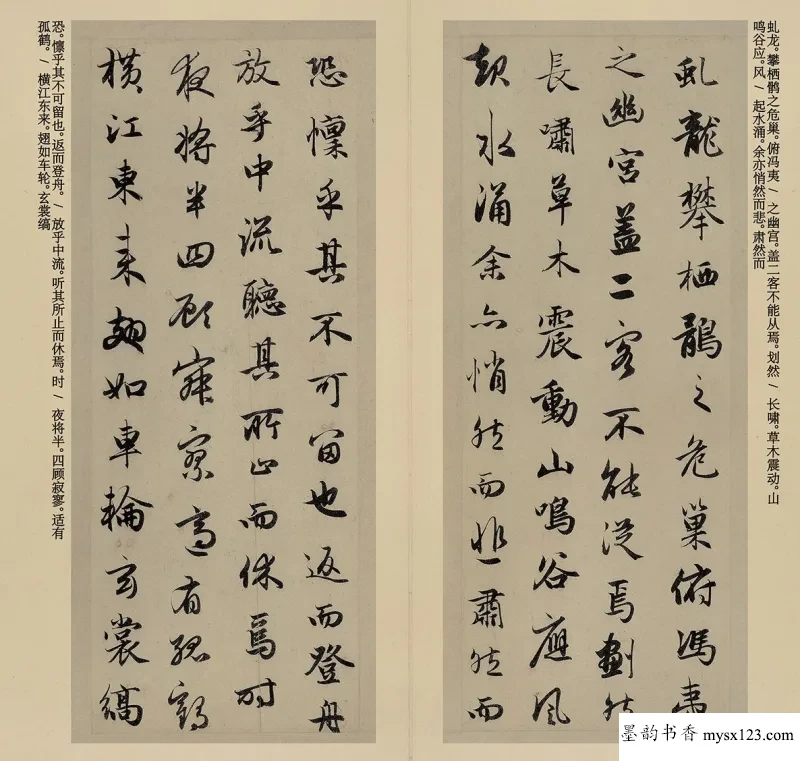 虬龙。攀栖鹘之危巢。俯冯夷/之幽宫。盖二客不能从焉。划然/长啸。草木震动。山
鸣谷应。风/起水涌。余亦悄然而悲。肃然而
虬龍攀栖鶻之危巢俯馮夷
之幽宮盖二客不能從焉劃然
長嘯草木震動山鳴谷應風
起水涌余亦悄然而悲肅然而
恐。懔乎其不可留也。返而登舟。/放乎中流。听其所止而休焉。时/夜将半。四顾寂寥。适有
孤鹤。/横江东来。翅如车轮。玄裳缟
恐懔乎其不可留也返而登舟
放乎中流聽其所止而休焉時
夜将半四顧寂寥適有孤鶴
横江東来翅如車輪玄裳縞
墨韵书香 mysx123.com